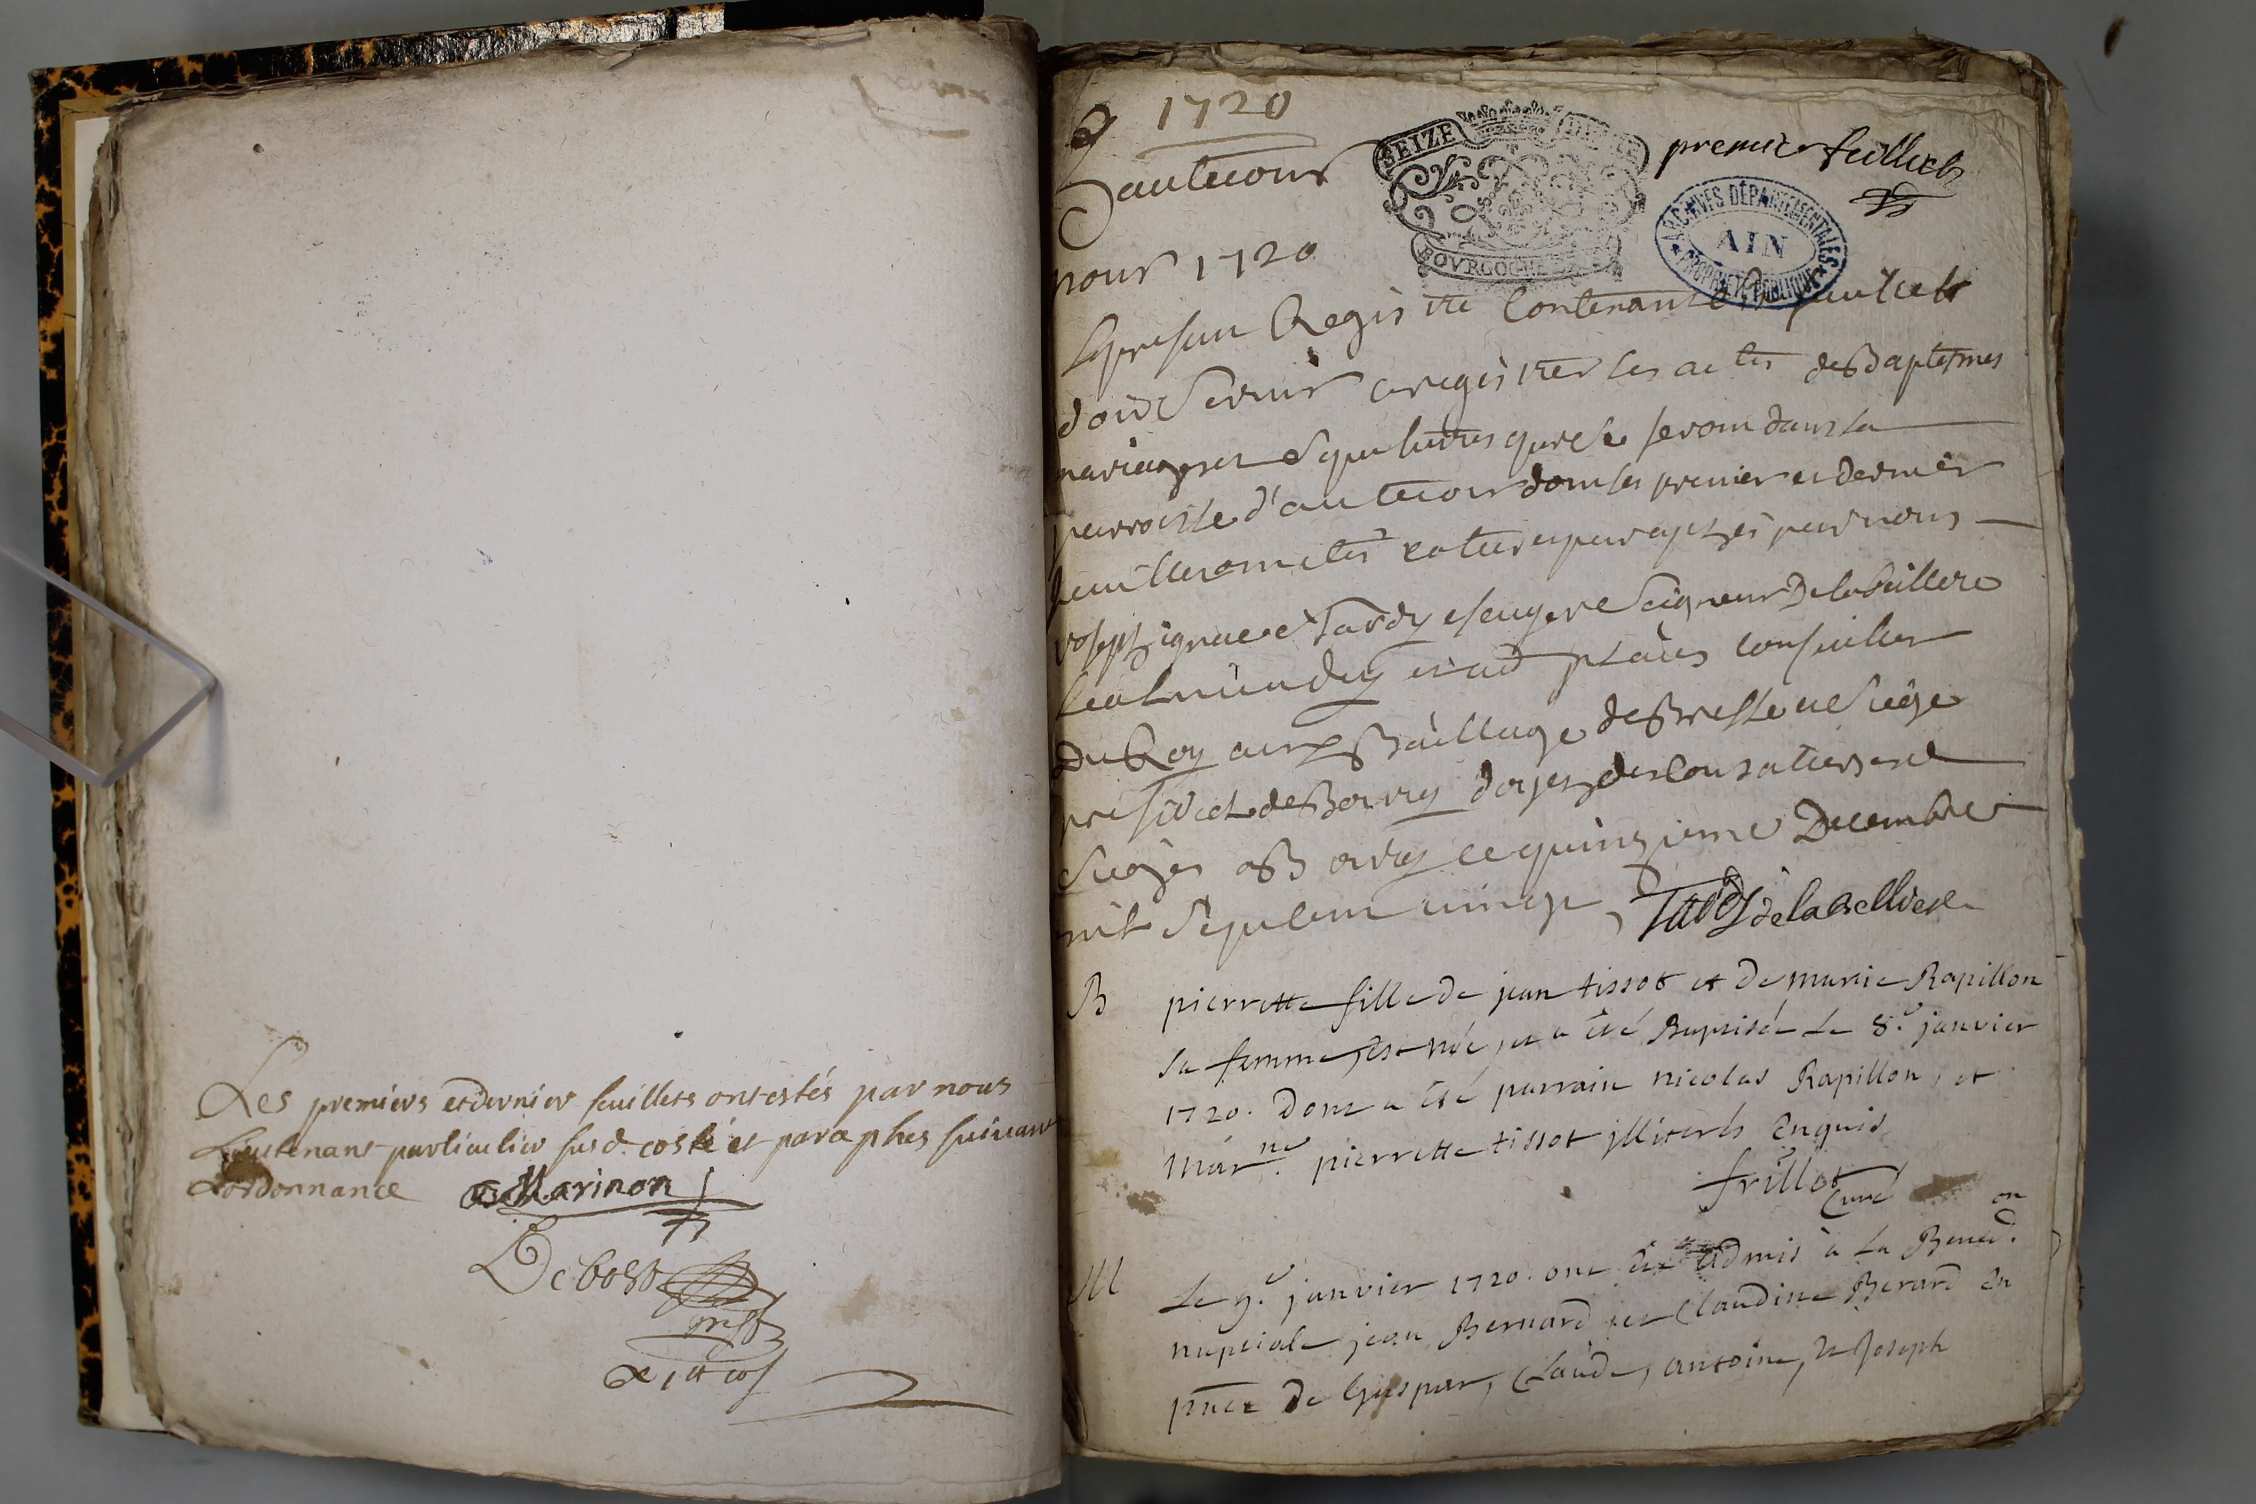 Les premiers et dernier feuillets ont estés par nous
Lieutenant particulier susd. costé et paraphes suivant
L'ordonnance Marinon
Debost
1720
premier feuillets
hautecour
SEIZE DEN
BOVRGOGNE
ARCHIVES DÉPARTEMENTALES
AIN
PROPRIÉTÉ PUBLIQUE
pour 1720
Le present Registre Contenant feuillets
doit Servir a registrer les actes de Baptesmes
mariages et Sepultures qui se feront dans la
parroisse d'autecour dont les premier et dernier
feuillet ont etes cottes et paraphes par nous
Joseph ignace Tardy escuyer Seigneur De la Belliere
conseiller
Du Roy aux Bailliage de Bresse et Siege
presidial de Bourg doyen des
Sieges a Bourg ce quinzieme Decembre
mil Sept cent Tardy de la Belliere
B pierrette fille de jean tissot et de marie Rapillon
sa femme, est née, et a été Baptisée Le 8.e janvier
1720. Dont a été parrain nicolas Rapillon, et
Mar.ne pierrette tissot illiterés Enquis
frillet
Curé
M Le 9.e janvier 1720. ont été admis à La Bened.on
nuptiale jean Bernard et Claudine Berard En
pñce de Gaspar, Claude, antoine, et Joseph